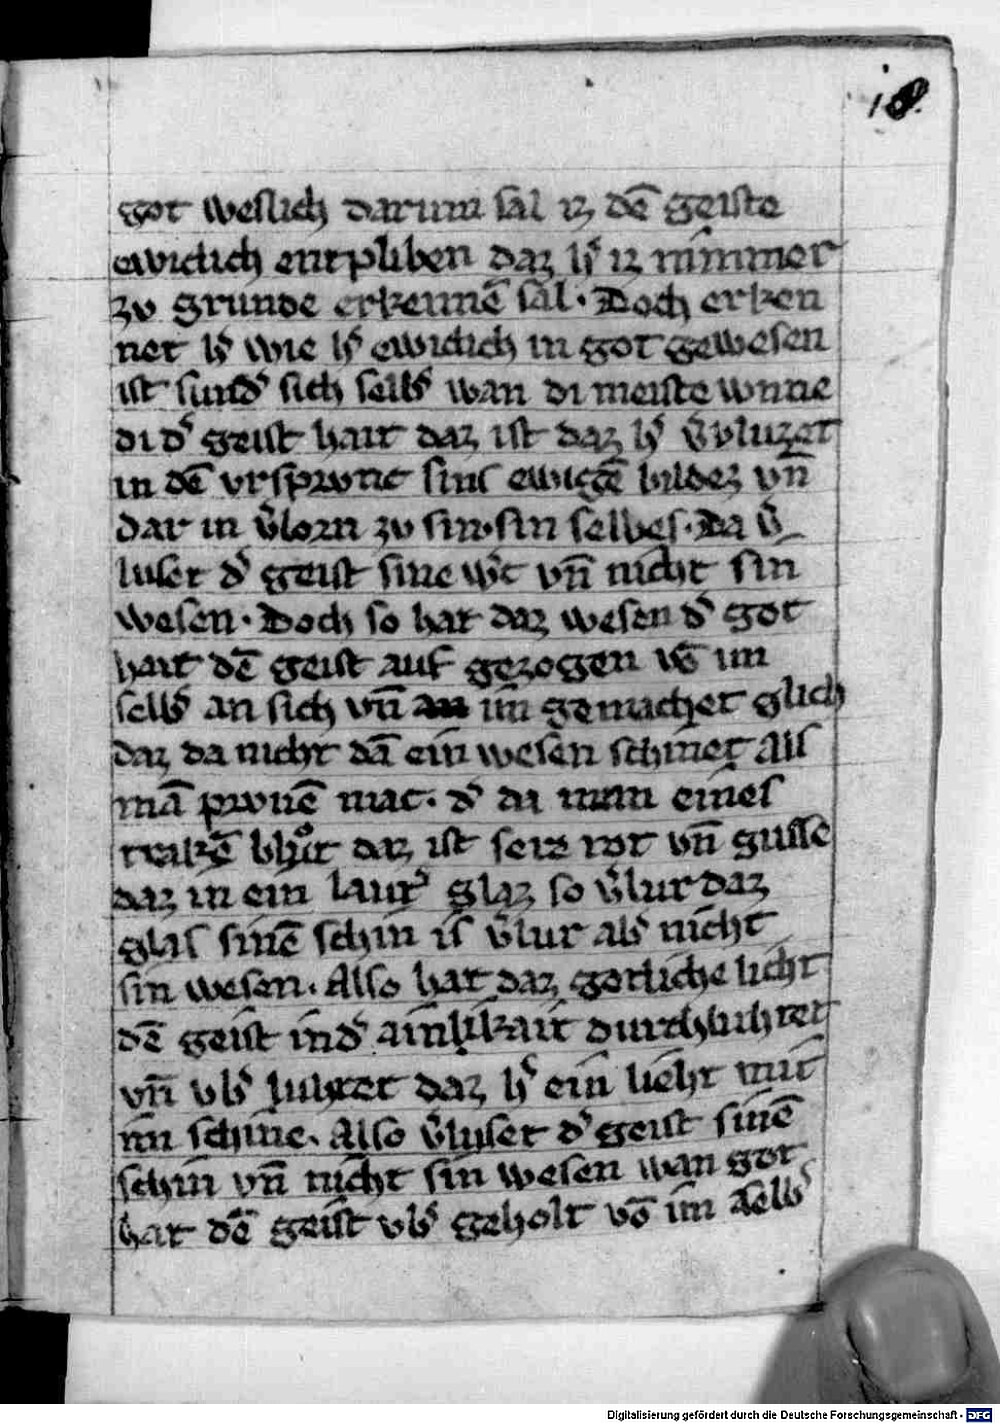 i8.
got weslich darum sal iz dē geiste
ewiclich entpliben daz h͛ iz nimmer
zv grunde erkennē sal · Doch erken
net h͛ wie h͛ ewiclich in got gewesen
ist sund͛ sich selb͛ wan di meiste wnne
di d͛ geist hait daz ist daz h͛ v͛vluzet
in dē vrsprvnc sins ewigē bildez vn̄
dar in v͛lorn zv sin · sin selbes · Da v͛
luset d͛ geist sine w͛c vn̄ nicht sin
wesen · Doch so hat daz wesen d͛ got
hait dē geist auf gezogen vō im
selb͛ an sich vn̄ im gemachet glich
daz da nicht dā ein wesen schinet als
mā prvuē mac · d͛ da man eines
daz ist rot vn̄ gusse
daz in ein laut͛ glaz so v͛lur daz
glas sinē schin is v͛lur ab͛ nicht
sin wesen · Also hat daz gotliche licht
dē geist in d͛ ainlikait durchluhtet
vn̄ vb͛ luhtet daz h͛ ein lieht mit
im schine · Also v͛luset d͛ geist sinē
schin vn̄ nicht sin wesen wan got
hat dē geist vb͛ geholt vō im selb͛
Digitalisierung gefördert durch die Deutsche Forschungsgemeinschaft - DFG